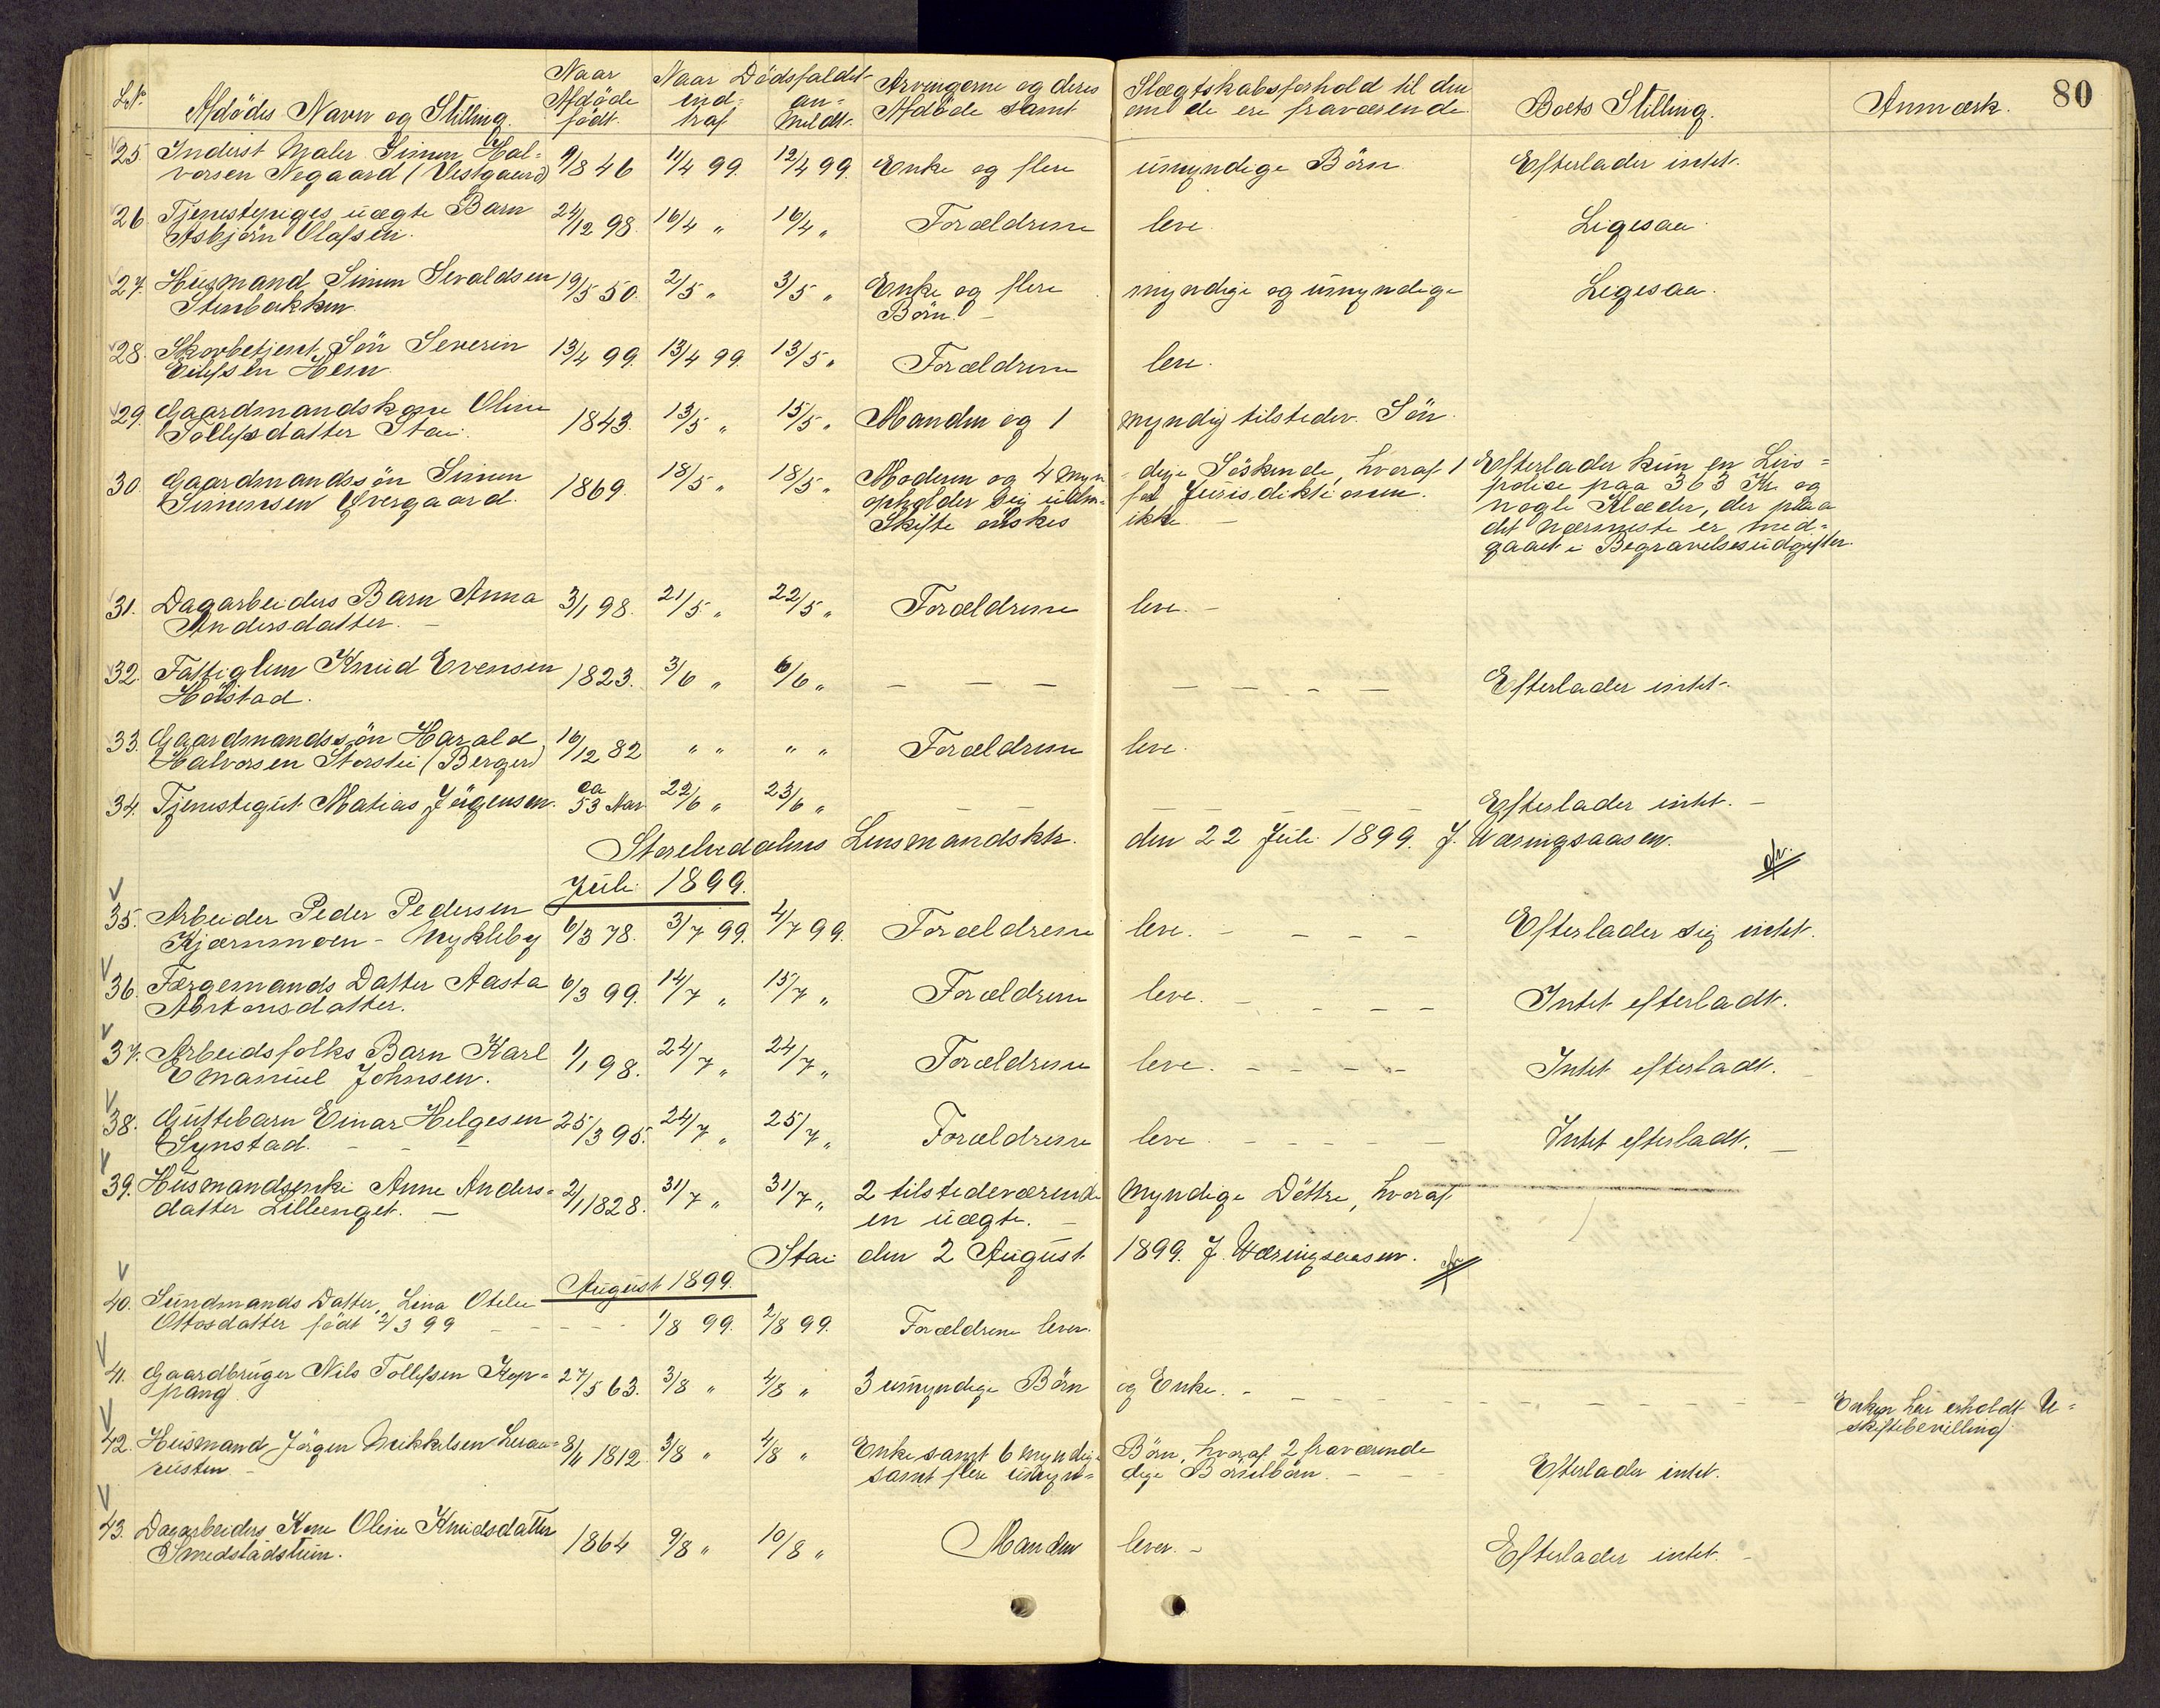 80
L.Nr. Afdødes Navn og Stilling. Naar Afdøde født. Naar Dødsfaldet ind= traf. an= meldt. Arvingerne og deres Slægtskabsforhold til den Afdøde samt om de ere fraværende Boets Stilling. Anmærk.
25. Inderst Maler Simen Hal= 9/8 46 11/4 99. 12/4 99. Enke og flere umyndige Börn. Efterlader intet.
vorsen Negaard (Vestgaard)
26. Tjenestepiges uægte Barn 24/12 98. 16/4 „ 16/4 „ Forældrene leve. Ligesaa.
Asbjörn Olafsen.
27. Husmand Simen Sevaldsen 19/5 50. 2/5 „ 3/5 „ Enke og flere myndige og umyndige Ligesaa.
Stenbakken. Börn. –
28. Skovbetjent Sön Severin 13/4 99. 13/4 99. 13/5 „ Forældrene leve.
Eilefsen Hesn
29. Gaardmandskone Oline 1843. 13/5 „ 15/5 „ Manden og 1 myndig tilstedev. Sön.
Tollefsdatter Stai.
30. Gaardmandssön Simen 1869. 18/5 „ 18/5 „ Moderen og 4 myn- dige Söskende, hvoraf 1 Efterlader kun en Livs=
Simensen Övergaard. opholder sig uden- for Jurisdiktionen. police paa 363 Kr og
Skifte önskes ikke – nogle Klæder, der paa
det nærmeste er med=
gaaet i Begravelsesudgifter.
31. Dagarbeiders Barn Anna 3/1 98. 21/5 „ 22/5 „ Forældrene leve. –
Andersdatter. –
32. Fattiglem Knud Evensen 1823. 3/6 „ 6/6 „ – – – – – – – Efterlader intet.
Holstad.
33. Gaardmandssön Harald 16/12 82 „ „ „ „ Forældrene leve.
Halvorsen Storstei (Berger)
34. Tjenestegut Matias Jörgensen. ca 53 Aar 22/6 „ 23/6 „ – – – – – – – Efterlader intet. –
Storelvedalens Lensmandsktr. den 22 Juli 1899. J. Wæringsaasen.
Juli 1899.
35. Arbeider Peder Pedersen 6/3 78. 3/7 99. 4/7 99. Forældrene leve. – – – – Efterlader sig intet.
Kjærnmoen – Mykleby
36. Færgemands Datter Aasta 6/3 99. 14/7 „ 15/7 „ Forældrene leve. – – – – Intet efterladt.
Mortensdatter.
37. Arbeidsfolks Barn Karl 1/1 98. 24/7 „ 24/7 „ Forældrene leve. – – – – Intet efterladt.
Emanuel Johnsen.
38. Guttebarn Einar Helgesen 25/3 95. 24/7 „ 25/7 „ Forældrene leve. – – – – – Intet efterladt. –
Synstad. – – –
39. Husmandsenke Anne Anders= 2/1 1828. 31/7 „ 31/7 „ 2 tilstedeværende myndige Döttre, hvoraf
datter Lilleenget. – en uægte. –
Stai den 2 August 1899. J. Wæringsaasen.
August 1899.
40. Sundmands Datter, Lina Otelie
Ottosdatter född 2/3 99 – – – – 1/8 99. 2/8 99. Forældrene lever.
41. Gaardbruger Nils Tollefsen Kop= 27/5 63. 3/8 „ 4/8 „ 3 umyndige Börn og Enke. – – – – – – Enken her erholdt U=
pang skiftebevilling.
42. Husmand Jörgen Mikkelsen 8/11 1812. 3/8 „ 4/8 „ Enke samt 6 myndige Börn, hvoraf 2 fraværende
rusten – samt flere umyn= dige Börnebörn. – – Efterlader intet.
43. Dagarbeiders Kone Oline Knudsdatter 1864 9/8 „ 10/8 „ Manden lever. – Efterlader intet. –
Smedstadstuen.